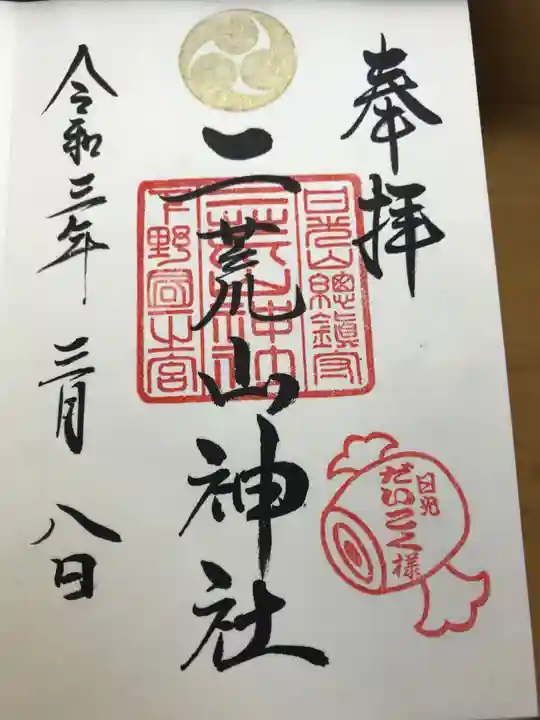 奉拝
日光山總鎮守
二荒山神社
下野國一之宮
日光
だいこく様
令和三年 三月 八日